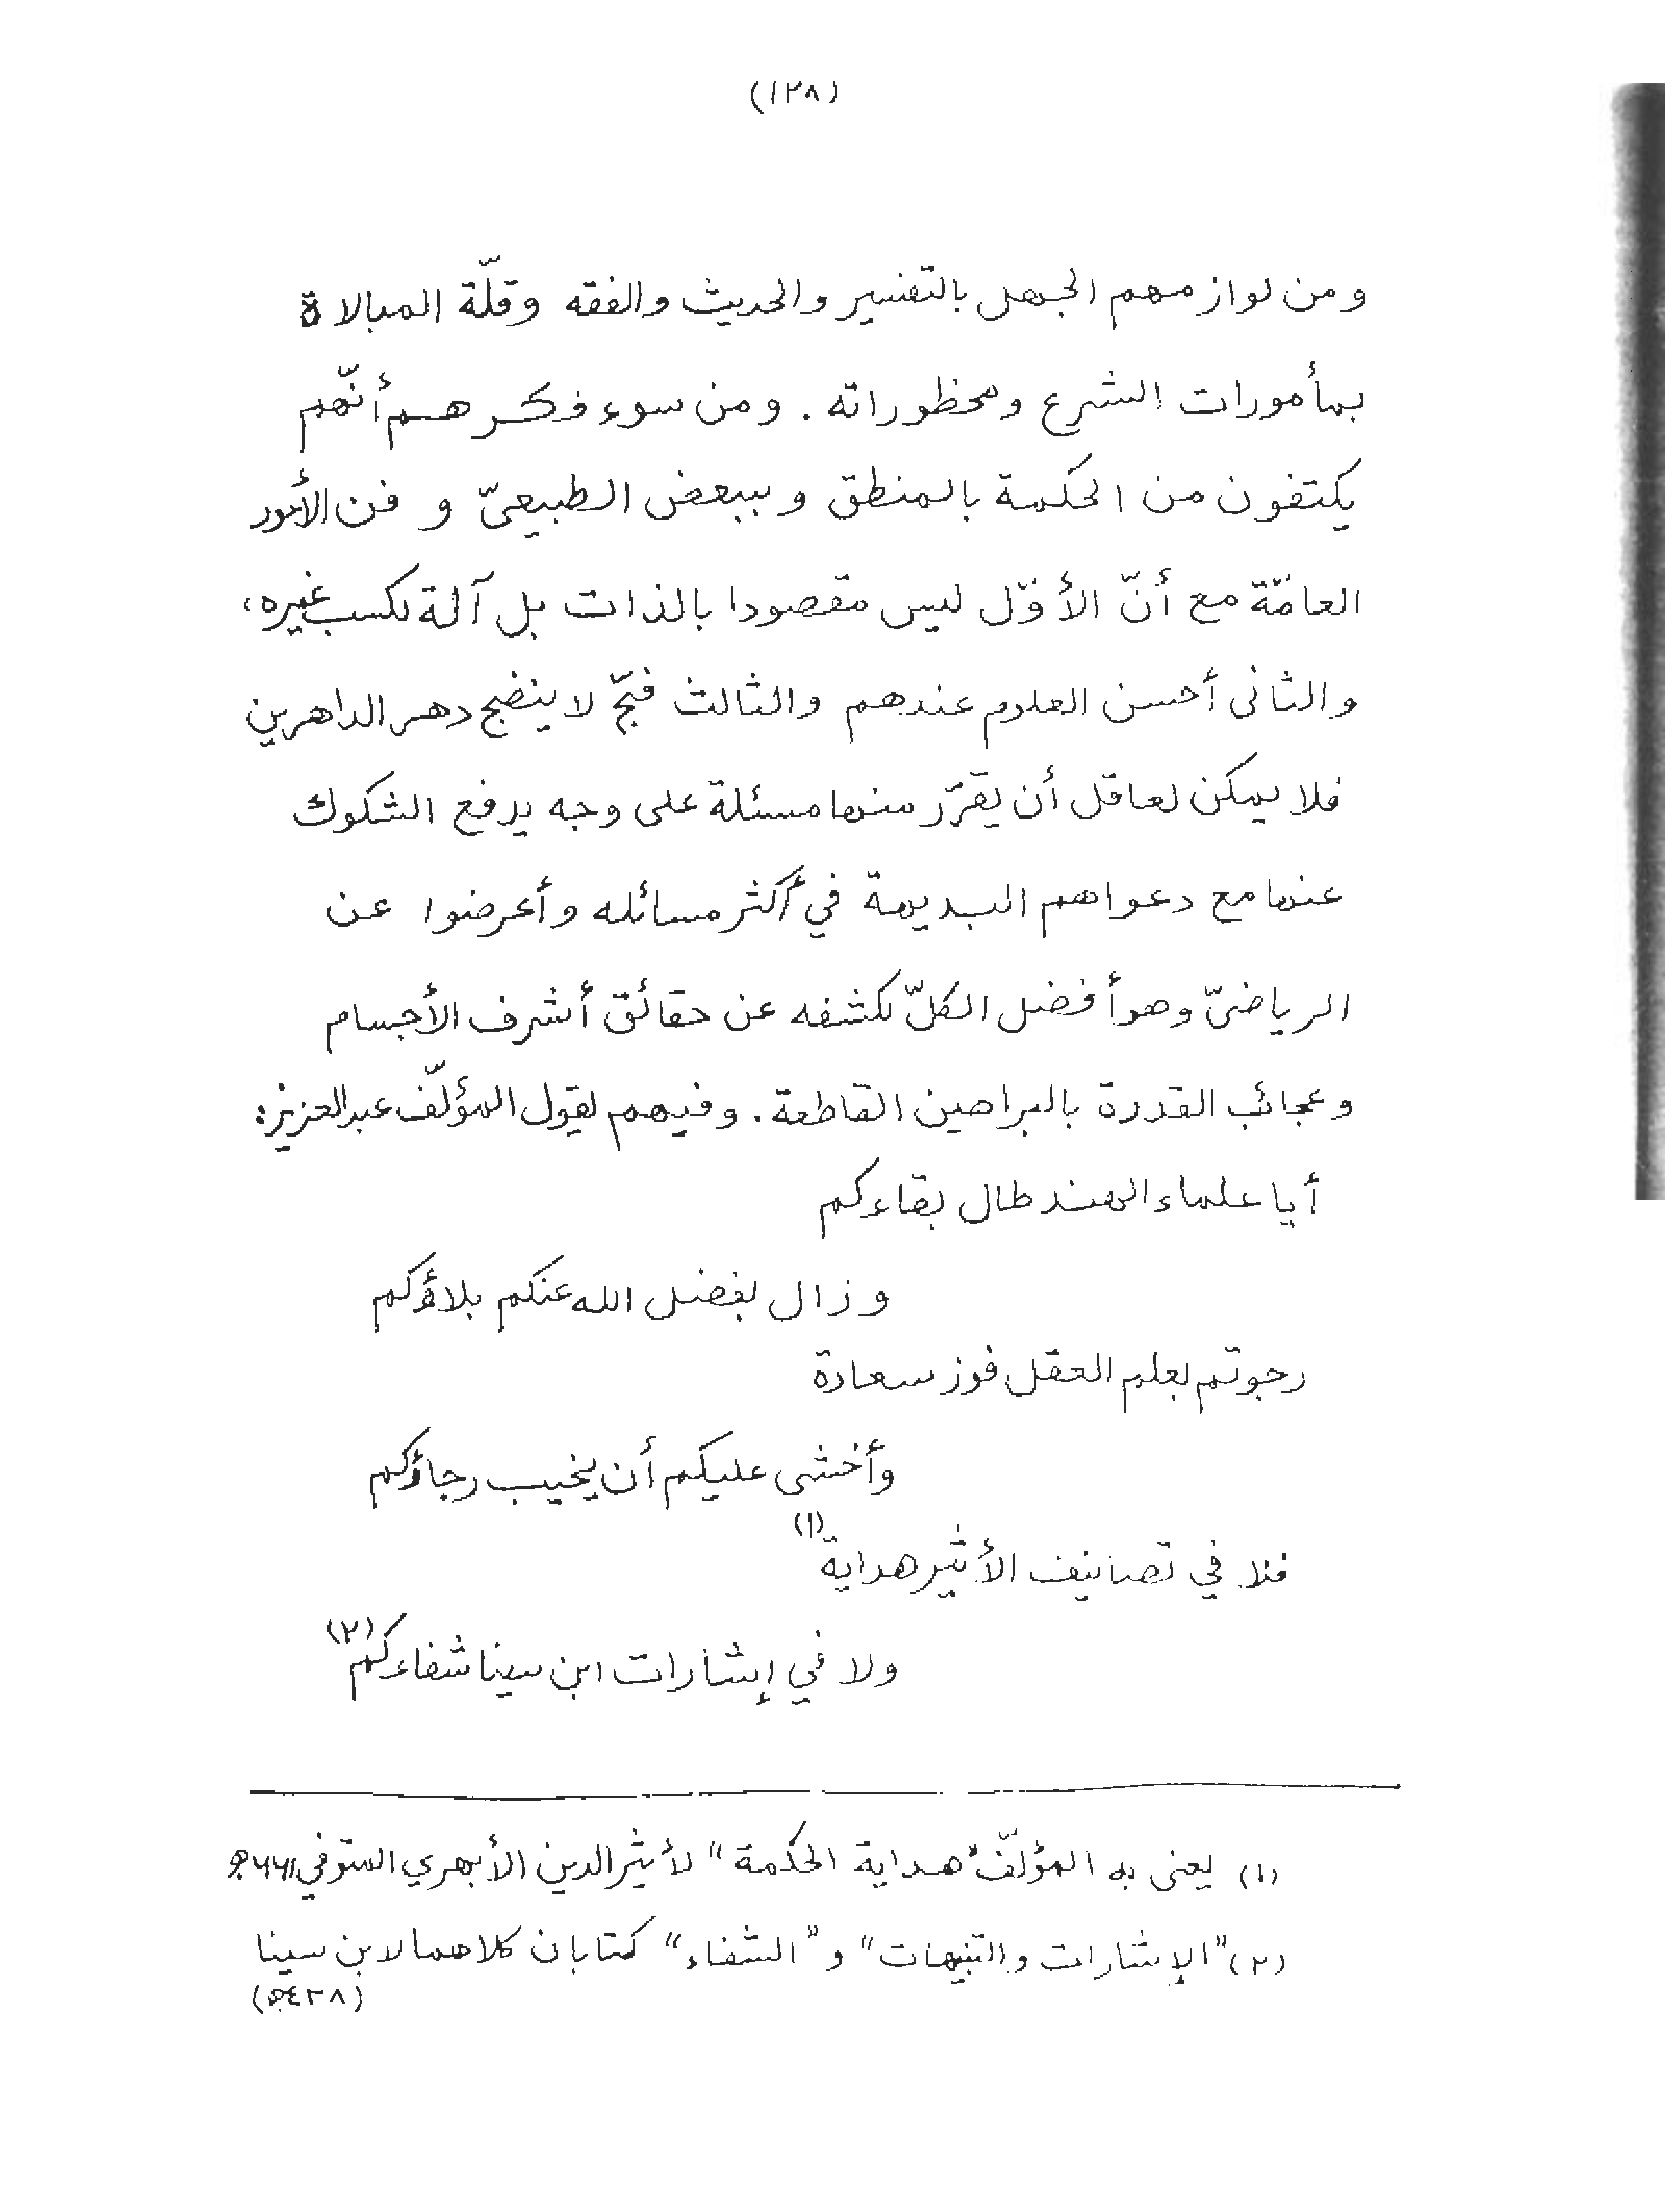 (١٢٨)
ومن لوازمهم الجهل بالتفسير والحديث والفقه وقلّة المبالاة
بمأمورات الشرع ومحظوراته . ومن سوء فكرهم أنّهم
يكتفون من الحكمة بالمنطق وببعض الطبيعىّ و فن الأمور
العامّة مع أنّ الأوّل ليس مقصودا بالذات بل آلة لكسب غيره،
والثانى أحسن العلوم عندهم والثالث فجّ لا ينضج دهر الداهرين
فلا يمكن لعاقل أن يقرّر منها مسئلة على وجه يدفع الشكوك
عنها مع دعواهم البديهة في أكثر مسائله وأعرضوا عن
الرياضىّ وهو أفضل الكلّ لكشفه عن حقائق أشرف الأجسام
وعجائب القدرة بالبراهين القاطعة . وفيهم يقول المؤلّف عبدالعزيز:
أيا علماء الهند طال بقاءكم
وزال بفضل الله عنكم بلاؤكم
رجوتم بعلم العقل فوز سعادة
وأخشى عليكم أن يخيب رجاؤكم
فلا في تصانيف الأثير هداية (١)
ولا في إشارات ابن سينا شفاءكم (٢)
(١) يعنى به المؤلّف "هداية الحكمة" لأثيرالدين الأبهري المتوفي ٦٦١ھ
(٢) "الإشارات والتنبيهات" و "الشفاء" كتابان كلاهما لابن سينا
(٤٢٨ھ)